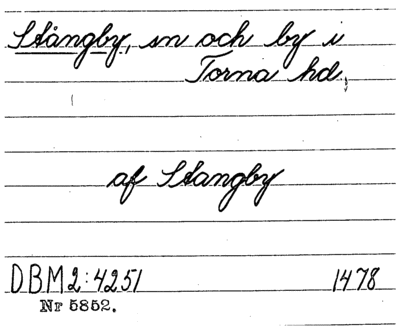 Stångby, sn och by i
Torna hd.
af Stangby
DBM 2:4251 1478
Nr 5852.